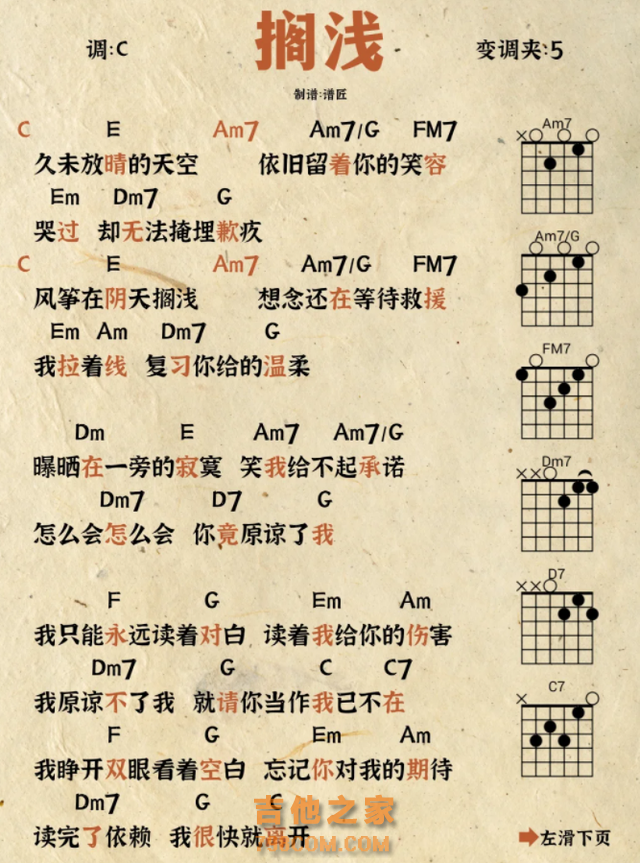 搁浅
调:C
变调夹:5
制谱:谱匠
C E Am7 Am7/G FM7
久未放晴的天空 依旧留着你的笑容
Em Dm7 G
哭过 却无法掩埋歉疚
C E Am7 Am7/G FM7
风筝在阴天搁浅 想念还在等待救援
Em Am Dm7 G
我拉着线 复习你给的温柔
Dm E Am7 Am7/G
曝晒在一旁的寂寞 笑我给不起承诺
Dm7 D7 G
怎么会怎么会 你竟原谅了我
F G Em Am
我只能永远读着对白 读着我给你的伤害
Dm7 G C C7
我原谅不了我 就请你当作我已不在
F G Em Am
我睁开双眼看着空白 忘记你对我的期待
Dm7 G C
读完了依赖 我很快就离开
Am7
Am7/G
FM7
Dm7
D7
C7
左滑下页
吉他之家
798COM.COM